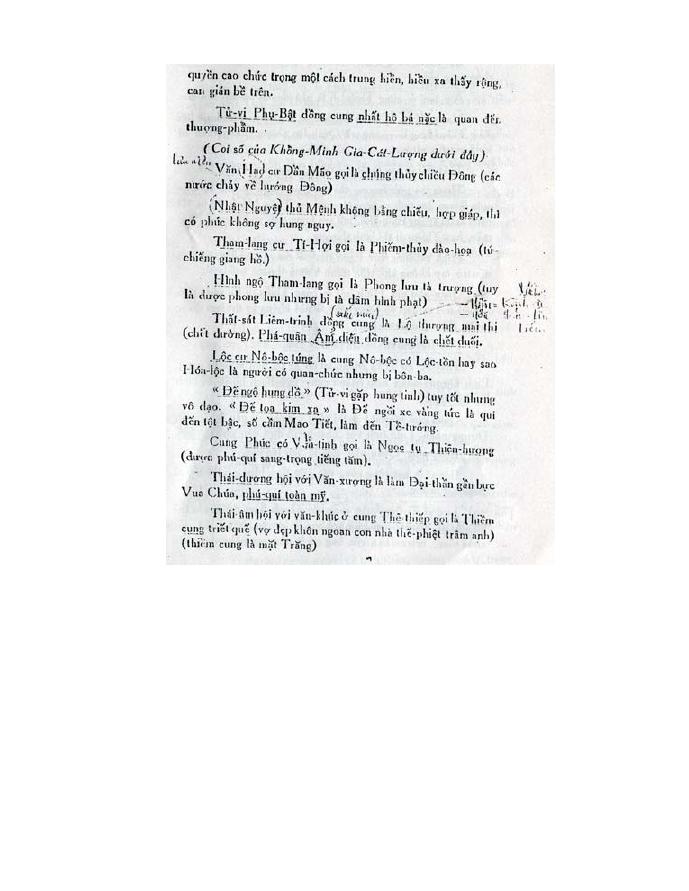 quyền cao chức trọng một cách trung hiền, hiền xa thấy rộng,
can gián bề trên.
Tử-vi Phụ-Bật đồng cung nhất hô bá nặc là quan đến
thượng-phẩm.
(Coi số của Khồng-Minh Gia-Cát-Lượng dưới đây)
Văn Hao cư Dần Mão gọi là chúng thủy chiều Đông (các
nước chảy về hướng Đông)
(Nhật Nguyệt) thủ Mệnh không bằng chiếu, hợp giáp, thì
có phúc không sợ hung nguy.
Tham-lang cư Tí-Hợi gọi là Phiếm-thủy đào-hoa (tứ-
chiếng giang hồ.)
Hình ngộ Tham-lang gọi là Phong lưu tả trượng (tuy
là được phong lưu nhưng bị tà dâm hình phạt)
Thất-sát Liêm-trinh đồng cung là Lộ thượng mai thi
(chết đường). Phá-quân Ấm diện đồng cung là chết đuối.
Lộc cư Nô-bộc túng là cung Nô-bộc có Lộc-tồn hay sao
Hóa-lộc là người có quan-chức nhưng bị bôn-ba.
« Đế ngộ hung đồ » (Tử-vi gặp hung tinh) tuy tốt nhưng
vô đạo. « Đế tọa kim xa » là Đế ngồi xe vàng tức là quí
đến tột bậc, số cầm Mao Tiết, làm đến Tề-tướng.
Cung Phúc có Vũ-tinh gọi là Ngọc tụ Thiện-hương
(được phú-quí sang-trọng tiếng tăm).
Thái-dương hội với Văn-xương là làm Đại-thần gần bực
Vua Chúa, phú-quí toàn mỹ.
Thái-âm hội với văn-khúc ở cung Thê-thiếp gọi là Thiềm
cung triết quế (vợ đẹp khôn ngoan con nhà thế-phiệt trâm anh)
(thiềm cung là mặt Trăng)